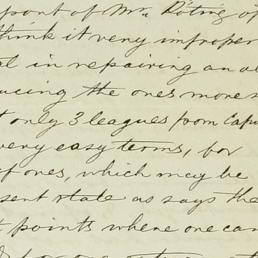 pont of Mr. Rótrig of
think it very improper
al in repairing an ol
ucing the ones more s
t only 3 leagues from Capu
very easy terms, for
of ones, which may be
sent state as says the
t points where one can